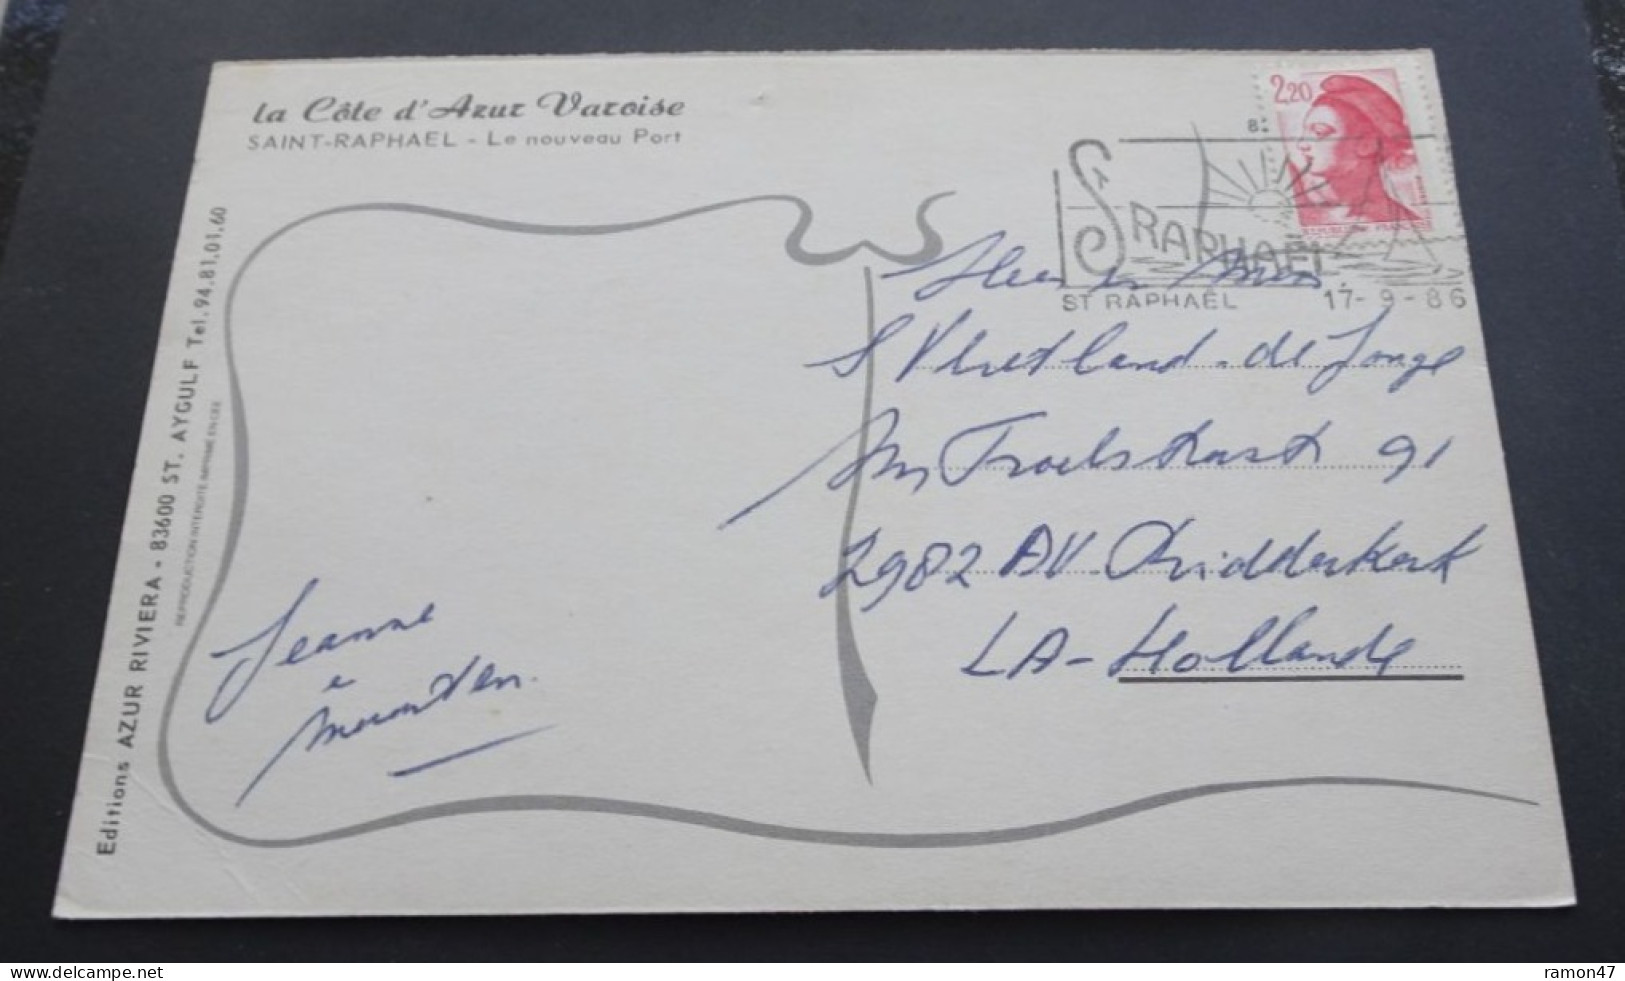 la Côte d'Azur Varoise
SAINT-RAPHAEL - Le nouveau Port
2,20
REPUBLIQUE FRANÇAISE
ST RAPHAEL
ST RAPHAËL 17-9-86
S Vlietland-de Jonge
Mr Troelstrastr 91
2982 AV-Ridderkerk
LA-Hollande
Jeanne
e
Maarten.
Editions AZUR RIVIERA - 83600 ST. AYGULF Tel. 94.81.01.60
REPRODUCTION INTERDITE IMPRIME EN CEE
www.delcampe.net
ramon47